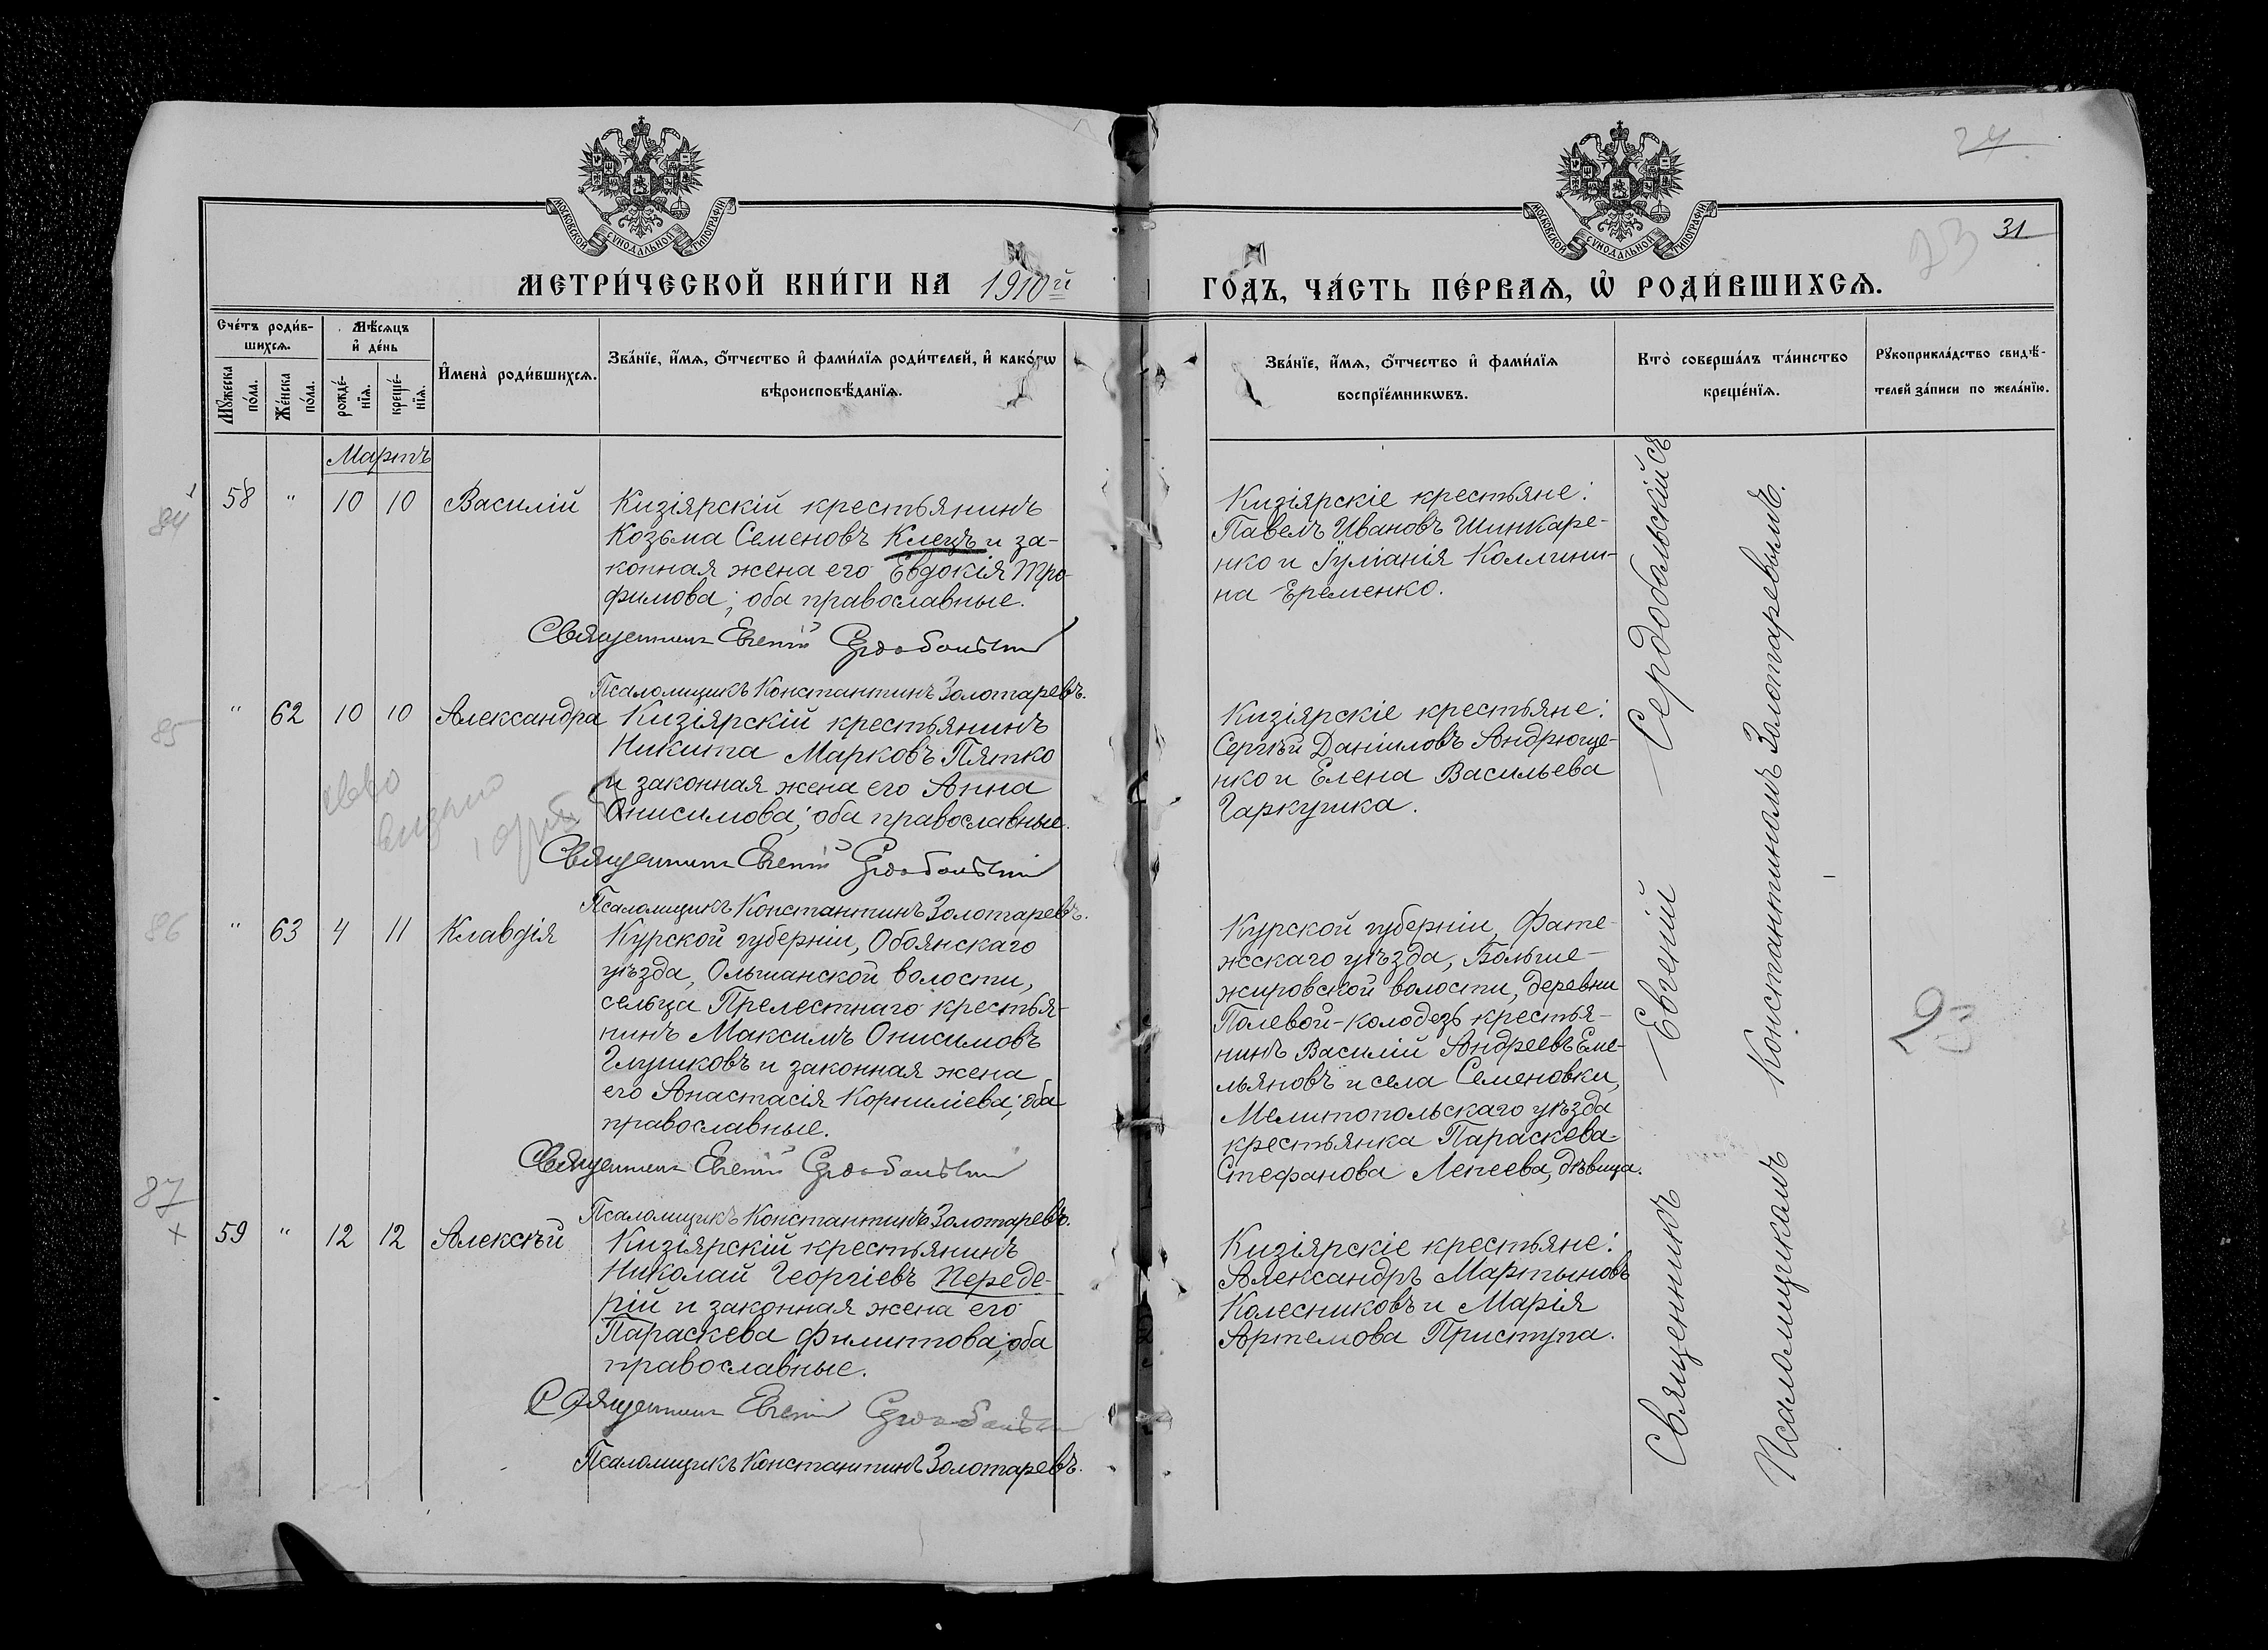 24
31
23
МОСКОВСКОЙ СѴНОДАЛЬНОЙ ТИПОГРАФІИ
МОСКОВСКОЙ СѴНОДАЛЬНОЙ ТИПОГРАФІИ
МЕТРИ́ЧЕСКОЙ КНИ́ГИ НА 1910й ГО́ДЪ, ЧА́СТЬ ПЕ́РВАѦ, Ѡ҆ РОДИ́ВШИХСѦ.
Сче́тъ роди́в-
шихсѧ.
Мꙋ́жеска по́ла.
Же́нска по́ла.
Мѣ́сѧцъ
и҆ де́нь
рожде́-
нїѧ.
креще́-
нїѧ.
И҆мена̀ роди́вшихсѧ.
Зва́нїе, и҆́мѧ, ѻ҆́тчество и҆ фами́лїѧ роди́телей, и҆ како́гѡ
вѣроисповѣ́данїѧ.
Зва́нїе, и҆́мѧ, ѻ҆́тчество и҆ фами́лїѧ
воспрїе́мникѡвъ.
Кто̀ соверша́лъ та́инство
креще́нїѧ.
Рꙋкоприкла́дство свидѣ́-
телей за́писи по жела́нїю.
Мартъ
84
58 " 10 10 Василій
Кизіярскій крестьянинъ
Козьма Семеновъ Клецъ и за-
конная жена его Евдокія Тро-
фимова; оба православные.
Священникъ Евгеній Сердобольскій
Псаломщикъ Константинъ Золотаревъ.
Кизіярскіе крестьяне:
Павелъ Ивановъ Шинкаре-
нко и Іуліанія Каллини-
на Еременко.
85
" 62 10 10 Александра
Кизіярскій крестьянинъ
Никита Марковъ Пятко
и законная жена его Анна
Онисимова; оба православные.
Священникъ Евгеній Сердобольскій
Псаломщикъ Константинъ Золотаревъ.
Кизіярскіе крестьяне:
Сергѣй Даніиловъ Андрюще-
нко и Елена Васильева
Гаркушка.
86
" 63 4 11 Клавдія
Курской губерніи, Обоянскаго
уѣзда, Ольшанской волости,
сельца Прелестнаго крестья-
нинъ Максимъ Онисимовъ
Глушковъ и законная жена
его Анастасія Корниліева; оба
православные.
Священникъ Евгеній Сердобольскій
Псаломщикъ Константинъ Золотаревъ.
Курской губерніи, Фате-
жскаго уѣзда, Больше-
жировской волости, деревни
Полевой-колодезь крестья-
нинъ Василій Андреевъ Еме-
льяновъ и села Семеновки,
Мелитопольскаго уѣзда
крестьянка Параскева
Стефанова Лепеева, дѣвица.
87
59 " 12 12 Алексѣй
Кизіярскій крестьянинъ
Николай Георгіевъ Переде-
рій и законная жена его
Параскева Филиппова; оба
православные.
Священникъ Евгеній Сердобольскій
Псаломщикъ Константинъ Золотаревъ.
Кизіярскіе крестьяне:
Александръ Мартыновъ
Колесниковъ и Марія
Артемова Приступа.
Священникъ Евгеній Сердобольскій съ
Псаломщикомъ Константиномъ Золотаревымъ.